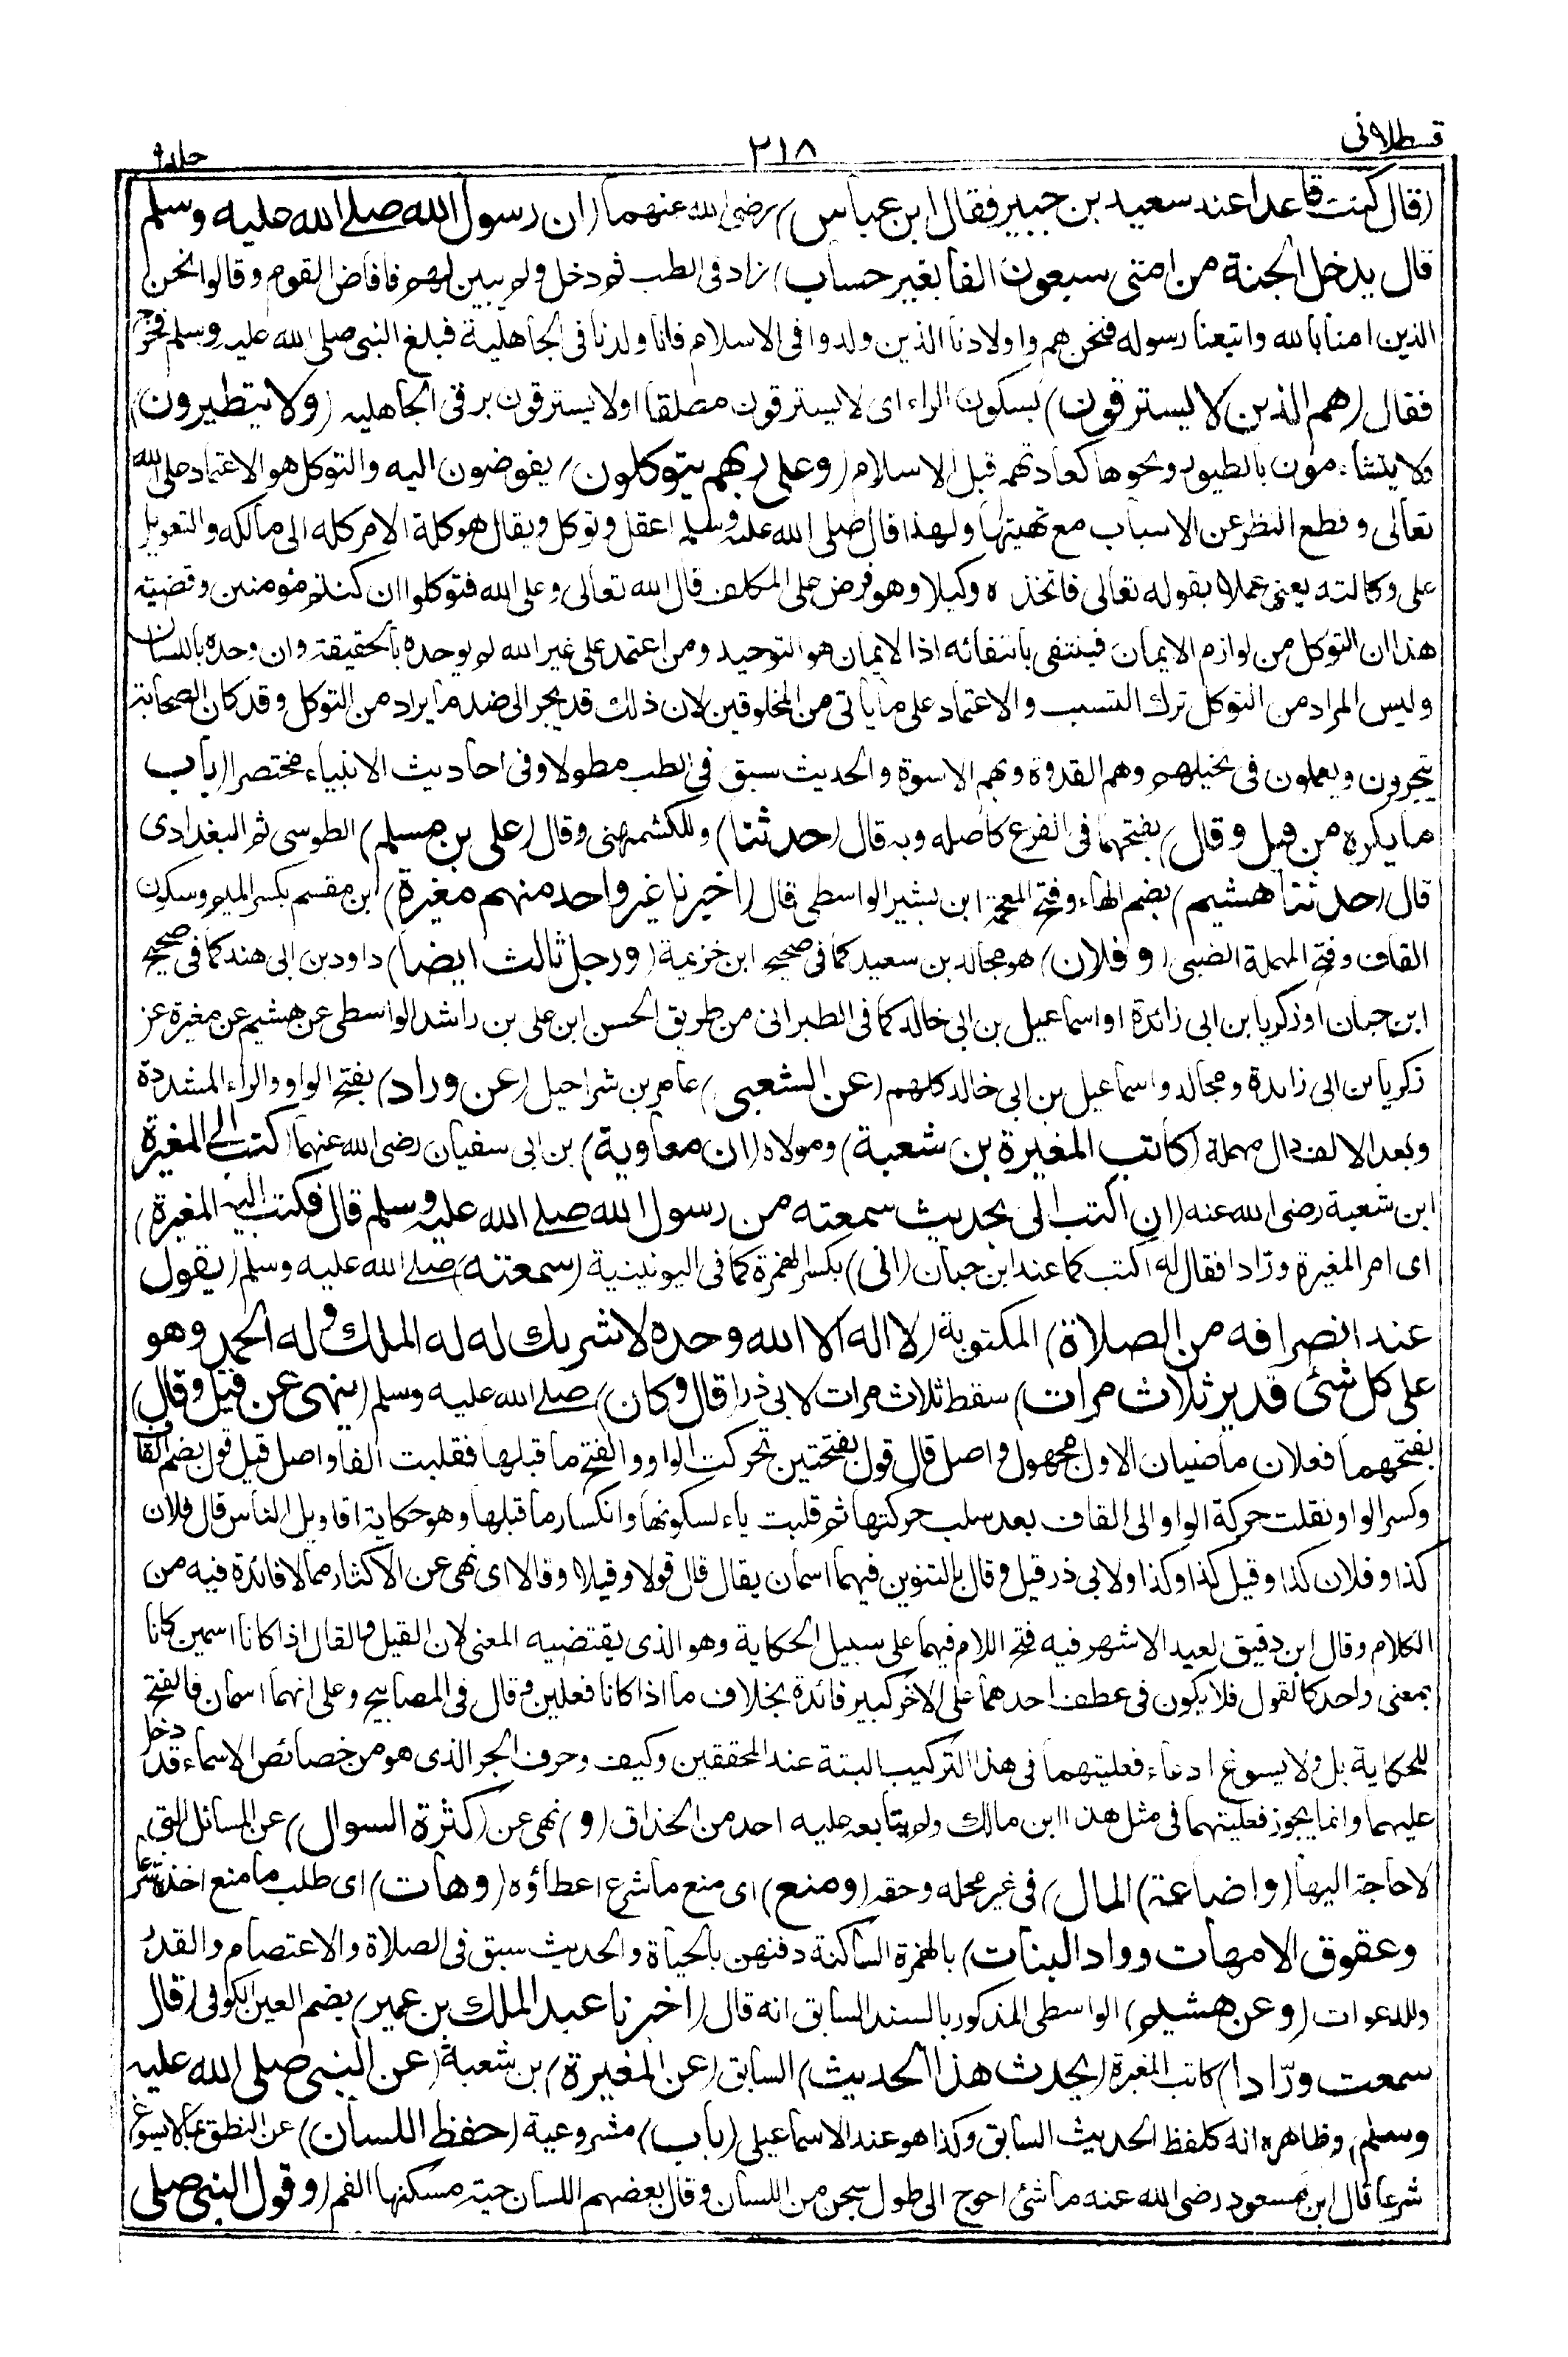 قسطلانی
٣١٨
جلد ٩
(قال كنت قاعدا عند سعيد بن جبير فقال ابن عباس) رضى الله عنهما (ان رسول الله صلى الله عليه وسلم
قال يدخل الجنة من امتى سبعون الفا بغير حساب) زاد فى الطب ثم دخل ولم يبين لهم فافاض القوم وقالوا نحن
الذين امنا بالله واتبعنا رسوله فنحن هم واولادنا الذين ولدوا فى الاسلام فانا ولدنا فى الجاهلية فبلغ النبى صلى الله عليه وسلم فخرج
فقال (هم الذين لا يسترقون) بسكون الراء اى لا يسترقون مطلقا اولا يسترقون برقى الجاهليه (ولا يتطيرون)
ولا يتشاءمون بالطيور ونحوها كعادتهم قبل الاسلام (وعلى ربهم يتوكلون) يفوضون اليه والتوكل هو الاعتماد على الله
تعالى وقطع النظر عن الاسباب مع تهيئتها ولهذا قال صلى الله عليه وسلم اعقل وتوكل ويقال هو كلة الامر كله الى مالكه والتعويل
على وكالته يعنى عملا بقوله تعالى فاتخذه وكيلا وهو فرض على المكلف قال الله تعالى وعلى الله فتوكلوا ان كنتم مؤمنين وقضية
هذا ان التوكل من لوازم الايمان فينتفى بانتفائه اذا لايمان هو التوحيد ومن اعتمد على غير الله لم يوحده بالحقيقة وان وحده باللسان
وليس المراد من التوكل ترك التسبب والاعتماد على ما يأتى من المخلوقين لان ذلك قد يجر الى ضد ما يراد من التوكل وقد كان الصحابة
يتجرون ويعملون فى نخيلهم وهم القدوة وبهم الاسوة والحديث سبق فى الطب مطولا وفى احاديث الانبياء مختصرا (باب
ما يكره من قيل وقال) بفتحهما فى الفرع كاصله وبه قال (حدثنا) وللكشميهنى وقال (على بن مسلم) الطوسى ثم البغدادى
قال (حدثنا هشيم) بضم الهاء وفتح المعجمة ابن بشير الواسطى قال (اخبرنا غير واحد منهم مغيرة) ابن مقسم بكسر الميم وسكون
القاف وفتح المهملة الضبى (وفلان) هو مجالد بن سعيد كما فى صحيح ابن خزيمة (ورجل ثالث ايضا) داود بن ابى هند كما فى صحيح
ابن حبان اوزكريا بن ابى زائدة او اسماعيل بن ابى خالد كما فى الطبرانى من طريق الحسن ابن على بن راشد الواسطى عن هشيم عن مغيرة عن
زكريا بن ابى زائدة ومجالد واسماعيل بن ابى خالد كلهم (عن الشعبى) عامر بن شراحيل (عن وراد) بفتح الواو والراء المشددة
وبعد الالف دال مهملة (كاتب المغيرة بن شعبة) ومولاه (ان معاوية) بن ابى سفيان رضى الله عنهما (كتب الى المغيرة
ابن شعبة رضى الله عنه (ان اكتب الى بحديث سمعته من رسول الله صلى الله عليه وسلم قال فكتب اليه المغيرة)
اى امر المغيرة ورّادا فقال له اكتب كما عند ابن حبان (انى) بكسر الهمزة كما فى اليونينية (سمعته) صلى الله عليه وسلم (يقول
عند انصرافه من الصلاة) المكتوبة (لا اله الا الله وحده لا شريك له له الملك وله الحمد وهو
على كل شئ قدير ثلاث مرات) سقط ثلاث مرات لابى ذر (قال وكان) صلى الله عليه وسلم (ينهى عن قيل وقال)
بفتحهما فعلان ماضيان الاول مجهول واصل قال قول بفتحتين تحركت الواو وانفتح ما قبلها فقلبت الفا واصل قيل قول بضم القاف
وكسر الواو نقلت حركة الواو الى القاف بعد سلب حركتها ثم قلبت ياء لسكونها وانكسار ما قبلها وهو حكاية اقاويل الناس قال فلان
كذا وفلان كذا وقيل كذا وكذا ولابى ذر قيل وقال بالتنوين فيهما اسمان يقال قال قولا وقيلا وقالا اى نهى عن الاكثار مما لا فائدة فيه من
الكلام وقال ابن دقيق لعيد الاشهر فيه فتح اللام فيهما على سبيل الحكاية وهو الذى يقتضيه المعنى لان القيل والقال اذا كانا اسمين كانا
بمعنى واحد كالقول فلا يكون فى عطف احدهما على الاخر كبير فائدة بخلاف ما اذا كانا فعلين وقال فى المصابيح وعلى انهما اسمان فالفتح
للحكاية بل ولا يسوغ ادعاء فعليتهما فى هذا التركيب البتة عند المحققين وكيف وحرف الجر الذى هو من خصائص الاسماء قد دخل
عليهما وانما يجوز فعليتهما فى مثل هذا ابن مالك ولم يتابعه عليه احد من الحذاق (و) نهى عن (كثرة السوال) عن المسائل التى
لا حاجة اليها (واضاعة) المال) فى غير محله وحقه (ومنع) اى منع ما شرع اعطاؤه (وهات) اى طلب ما منع اخذه شرعا
وعقوق الامهات وواد البنات) بالهمزة الساكنة دفنهن بالحياة والحديث سبق فى الصلاة والاعتصام والقدر
والدعوات (وعن هشيم) الواسطى المذكور بالسند السابق انه قال (اخبرنا عبد الملك بن عمير) بضم العين الكوفى (قال
سمعت ورّادا) كاتب المغيرة (يحدث هذا الحديث) السابق (عن المغيرة) بن شعبة (عن النبى صلى الله عليه
وسلم) وظاهره انه كلفظ الحديث السابق وكذا هو عند الاسماعيلى (باب) مشروعية (حفظ اللسان) عن النطق بما لا يسوغ
شرعا قال ابن مسعود رضى الله عنه ما شئ احوج الى طول سجن من اللسان وقال بعضهم اللسان حية مسكنها الفم (وقول النبى صلى